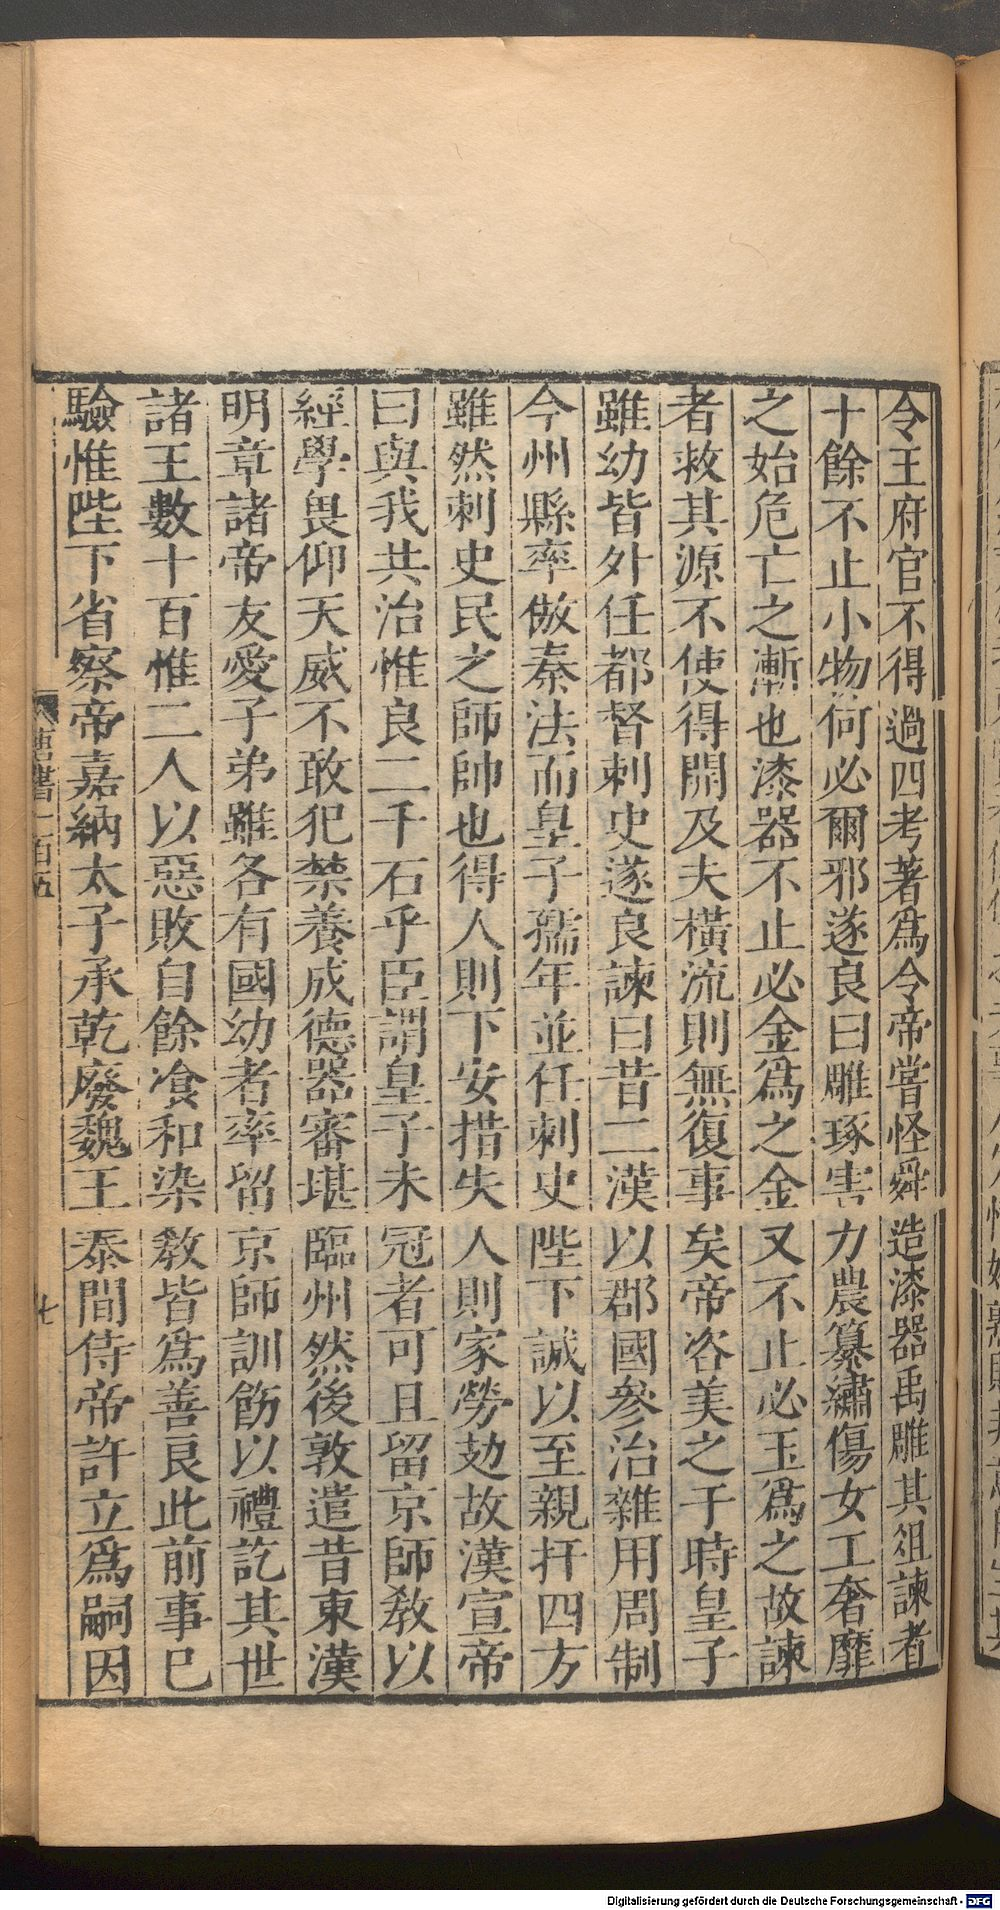 令王府官不得過四考著爲令帝嘗怪舜造漆器禹雕其俎諫者
十餘不止小物何必爾邪遂良曰雕琢害力農纂繡傷女工奢靡
之始危亡之漸也漆器不止必金爲之金又不止必玉爲之故諫
者救其源不使得開及夫橫流則無復事矣帝咨美之于時皇子
雖幼皆外任都督刺史遂良諫曰昔二漢以郡國參治雜用周制
今州縣率倣秦法而皇子孺年並任刺史陛下誠以至親扞四方
雖然刺史民之師帥也得人則下安措失人則家勞攰故漢宣帝
曰與我共治惟良二千石乎臣謂皇子未冠者可且留京師教以
經學畏仰天威不敢犯禁養成德器審堪臨州然後敦遣昔東漢
明章諸帝友愛子弟雖各有國幼者率留京師訓飭以禮訖其世
諸王數十百惟二人以惡敗自餘飡和染教皆爲善良此前事已
驗惟陛下省察帝嘉納太子承乾廢魏王泰間侍帝許立爲嗣因
唐書一百五
七
Digitalisierung gefördert durch die Deutsche Forschungsgemeinschaft - DFG